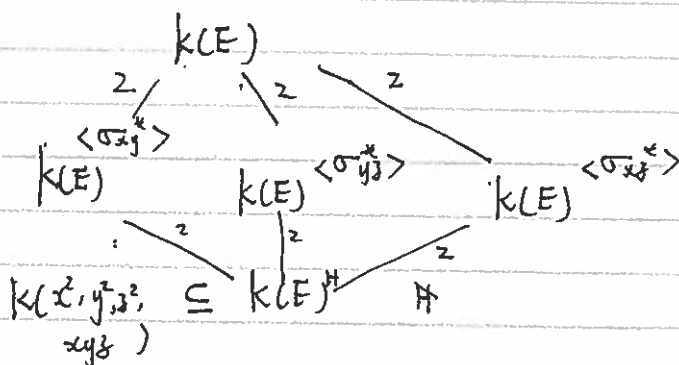 k(E)
2 2 2
k(E)^{<σ_{xy}^*>} k(E)^{<σ_{yz}^*>} k(E)^{<σ_{xz}^*>}
2 2 2
k(x², y², z², ⊆ k(E)^H H
xyz)